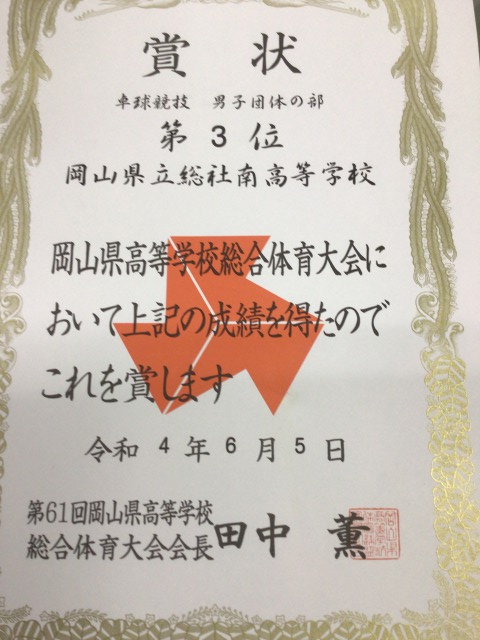 賞状
卓球競技 男子団体の部
第3位
岡山県立総社南高等学校
岡山県高等学校総合体育大会に
おいて上記の成績を得たので
これを賞します
令和4年6月5日
第61回岡山県高等学校
総合体育大会会長 田中 薫